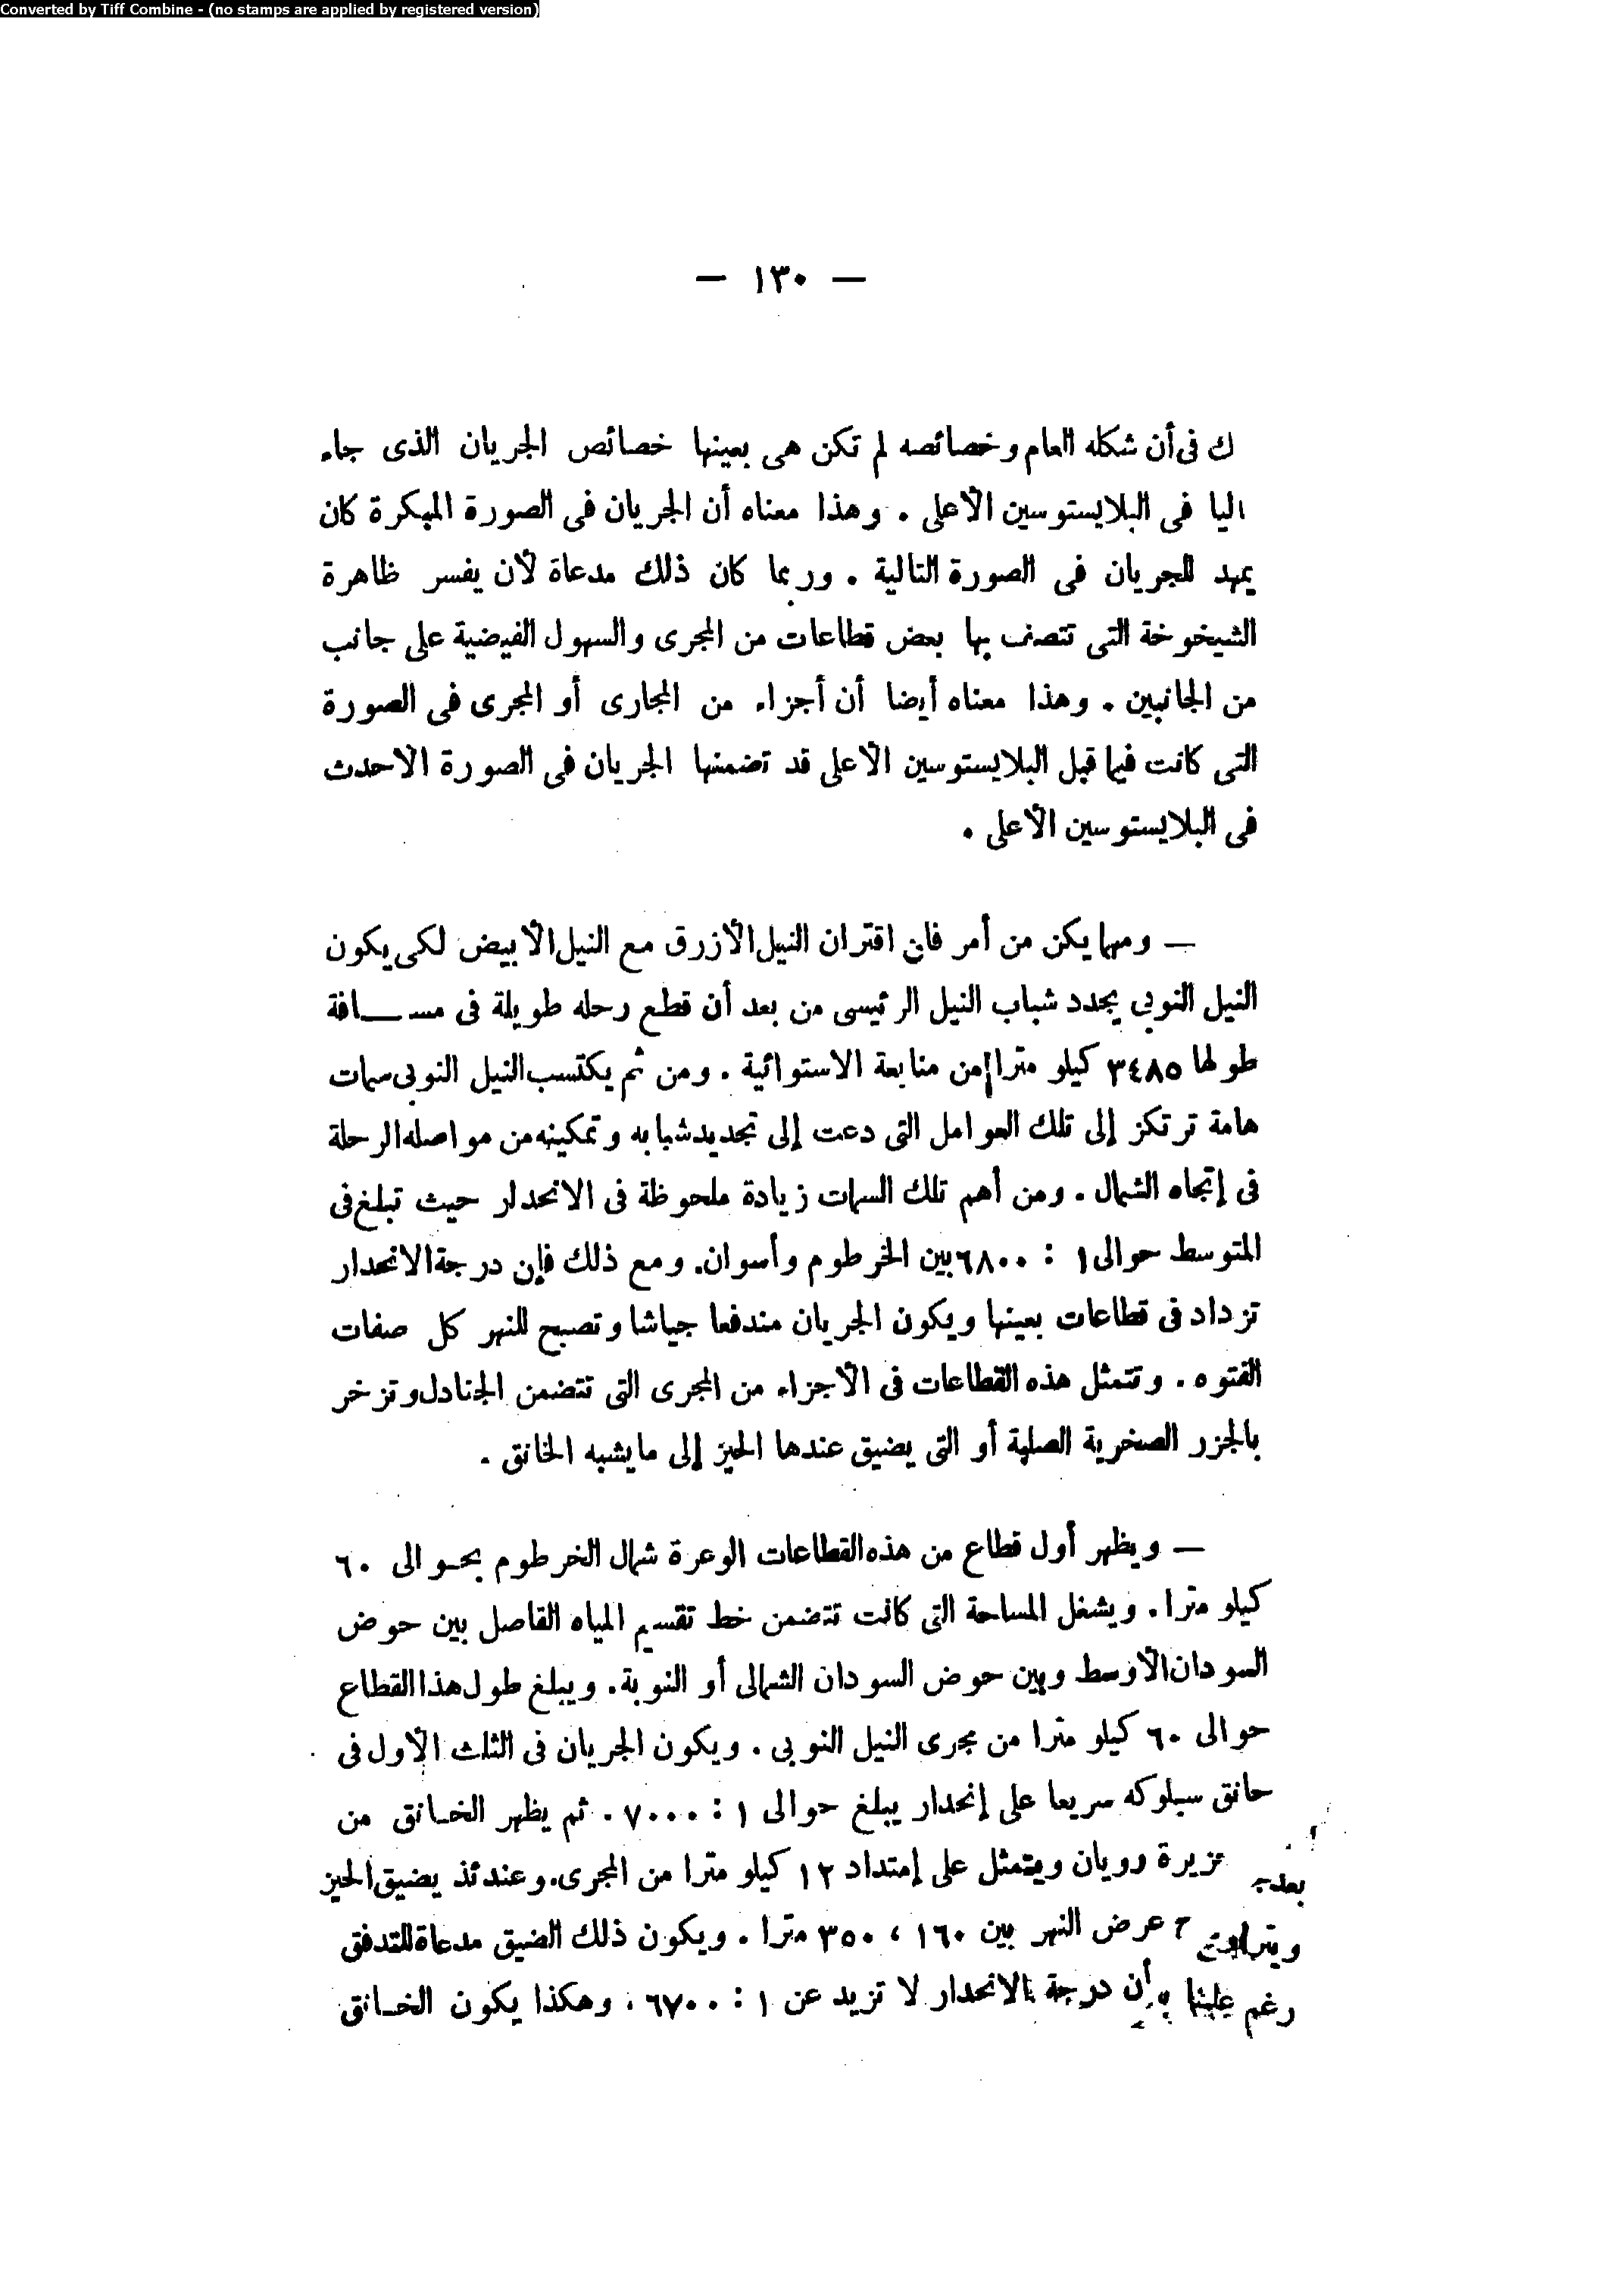 Converted by Tiff Combine - (no stamps are applied by registered version)
— ١٣٠ —
ك فى أن شكله العام وخصائصه لم تكن هى بعينها خصائص الجريان الذى جاء
اليا فى البلايستوسين الأعلى . وهذا معناه أن الجريان فى الصورة المبكرة كان
يمهد للجريان فى الصورة التالية . وربما كان ذلك مدعاة لأن يفسر ظاهرة
الشيخوخة التى تتصف بها بعض قطاعات من المجرى والسهول الفيضية على جانب
من الجانبين . وهذا معناه أيضا أن أجزاء من المجارى أو المجرى فى الصورة
التى كانت فيما قبل البلايستوسين الأعلى قد تضمنها الجريان فى الصورة الاحدث
فى البلايستوسين الأعلى .
— ومهما يكن من أمر فان اقتران النيل الأزرق مع النيل الأبيض لكى يكون
النيل النوبى يجدد شباب النيل الرئيسى من بعد أن قطع رحله طويلة فى مسافة
طولها ٣٤٨٥ كيلو مترا من منابعة الاستوائية . ومن ثم يكتسب النيل النوبى سمات
هامة ترتكز إلى تلك العوامل التى دعت إلى تجديد شبابه وتمكينه من مواصله الرحلة
فى إتجاه الشمال . ومن أهم تلك السمات زيادة ملحوظة فى الانحدار حيث تبلغ فى
المتوسط حوالى ١ : ٦٨٠٠ بين الخرطوم وأسوان. ومع ذلك فإن درجة الانحدار
تزداد فى قطاعات بعينها ويكون الجريان مندفعا جياشا وتصبح للنهر كل صفات
الفتوه . وتتمثل هذه القطاعات فى الأجزاء من المجرى التى تتضمن الجنادل وتزخر
بالجزر الصخرية الصلبة أو التى يضيق عندها الحيز إلى ما يشبه الخانق .
— ويظهر أول قطاع من هذه القطاعات الوعرة شمال الخرطوم بحوالى ٦٠
كيلو مترا . ويشغل المساحة التى كانت تتضمن خط تقسيم المياه الفاصل بين حوض
السودان الأوسط وبين حوض السودان الشمالى أو النوبة . ويبلغ طول هذا القطاع
حوالى ٦٠ كيلو مترا من مجرى النيل النوبى . ويكون الجريان فى الثلث الأول فى
خانق سبلوكه سريعا على إنحدار يبلغ حوالى ١ : ٧٠٠٠ . ثم يظهر الخانق من
بعد جزيرة رويان ويتمثل على إمتداد ١٢ كيلو مترا من المجرى. وعندئذ يضيق الحيز
ويتراوح عرض النهر بين ١٦٠ ، ٣٥٠ مترا . ويكون ذلك الضيق مدعاة للتدفق
رغم علمنا بأن درجة الانحدار لا تزيد عن ١ : ٦٧٠٠ . وهكذا يكون الخانق